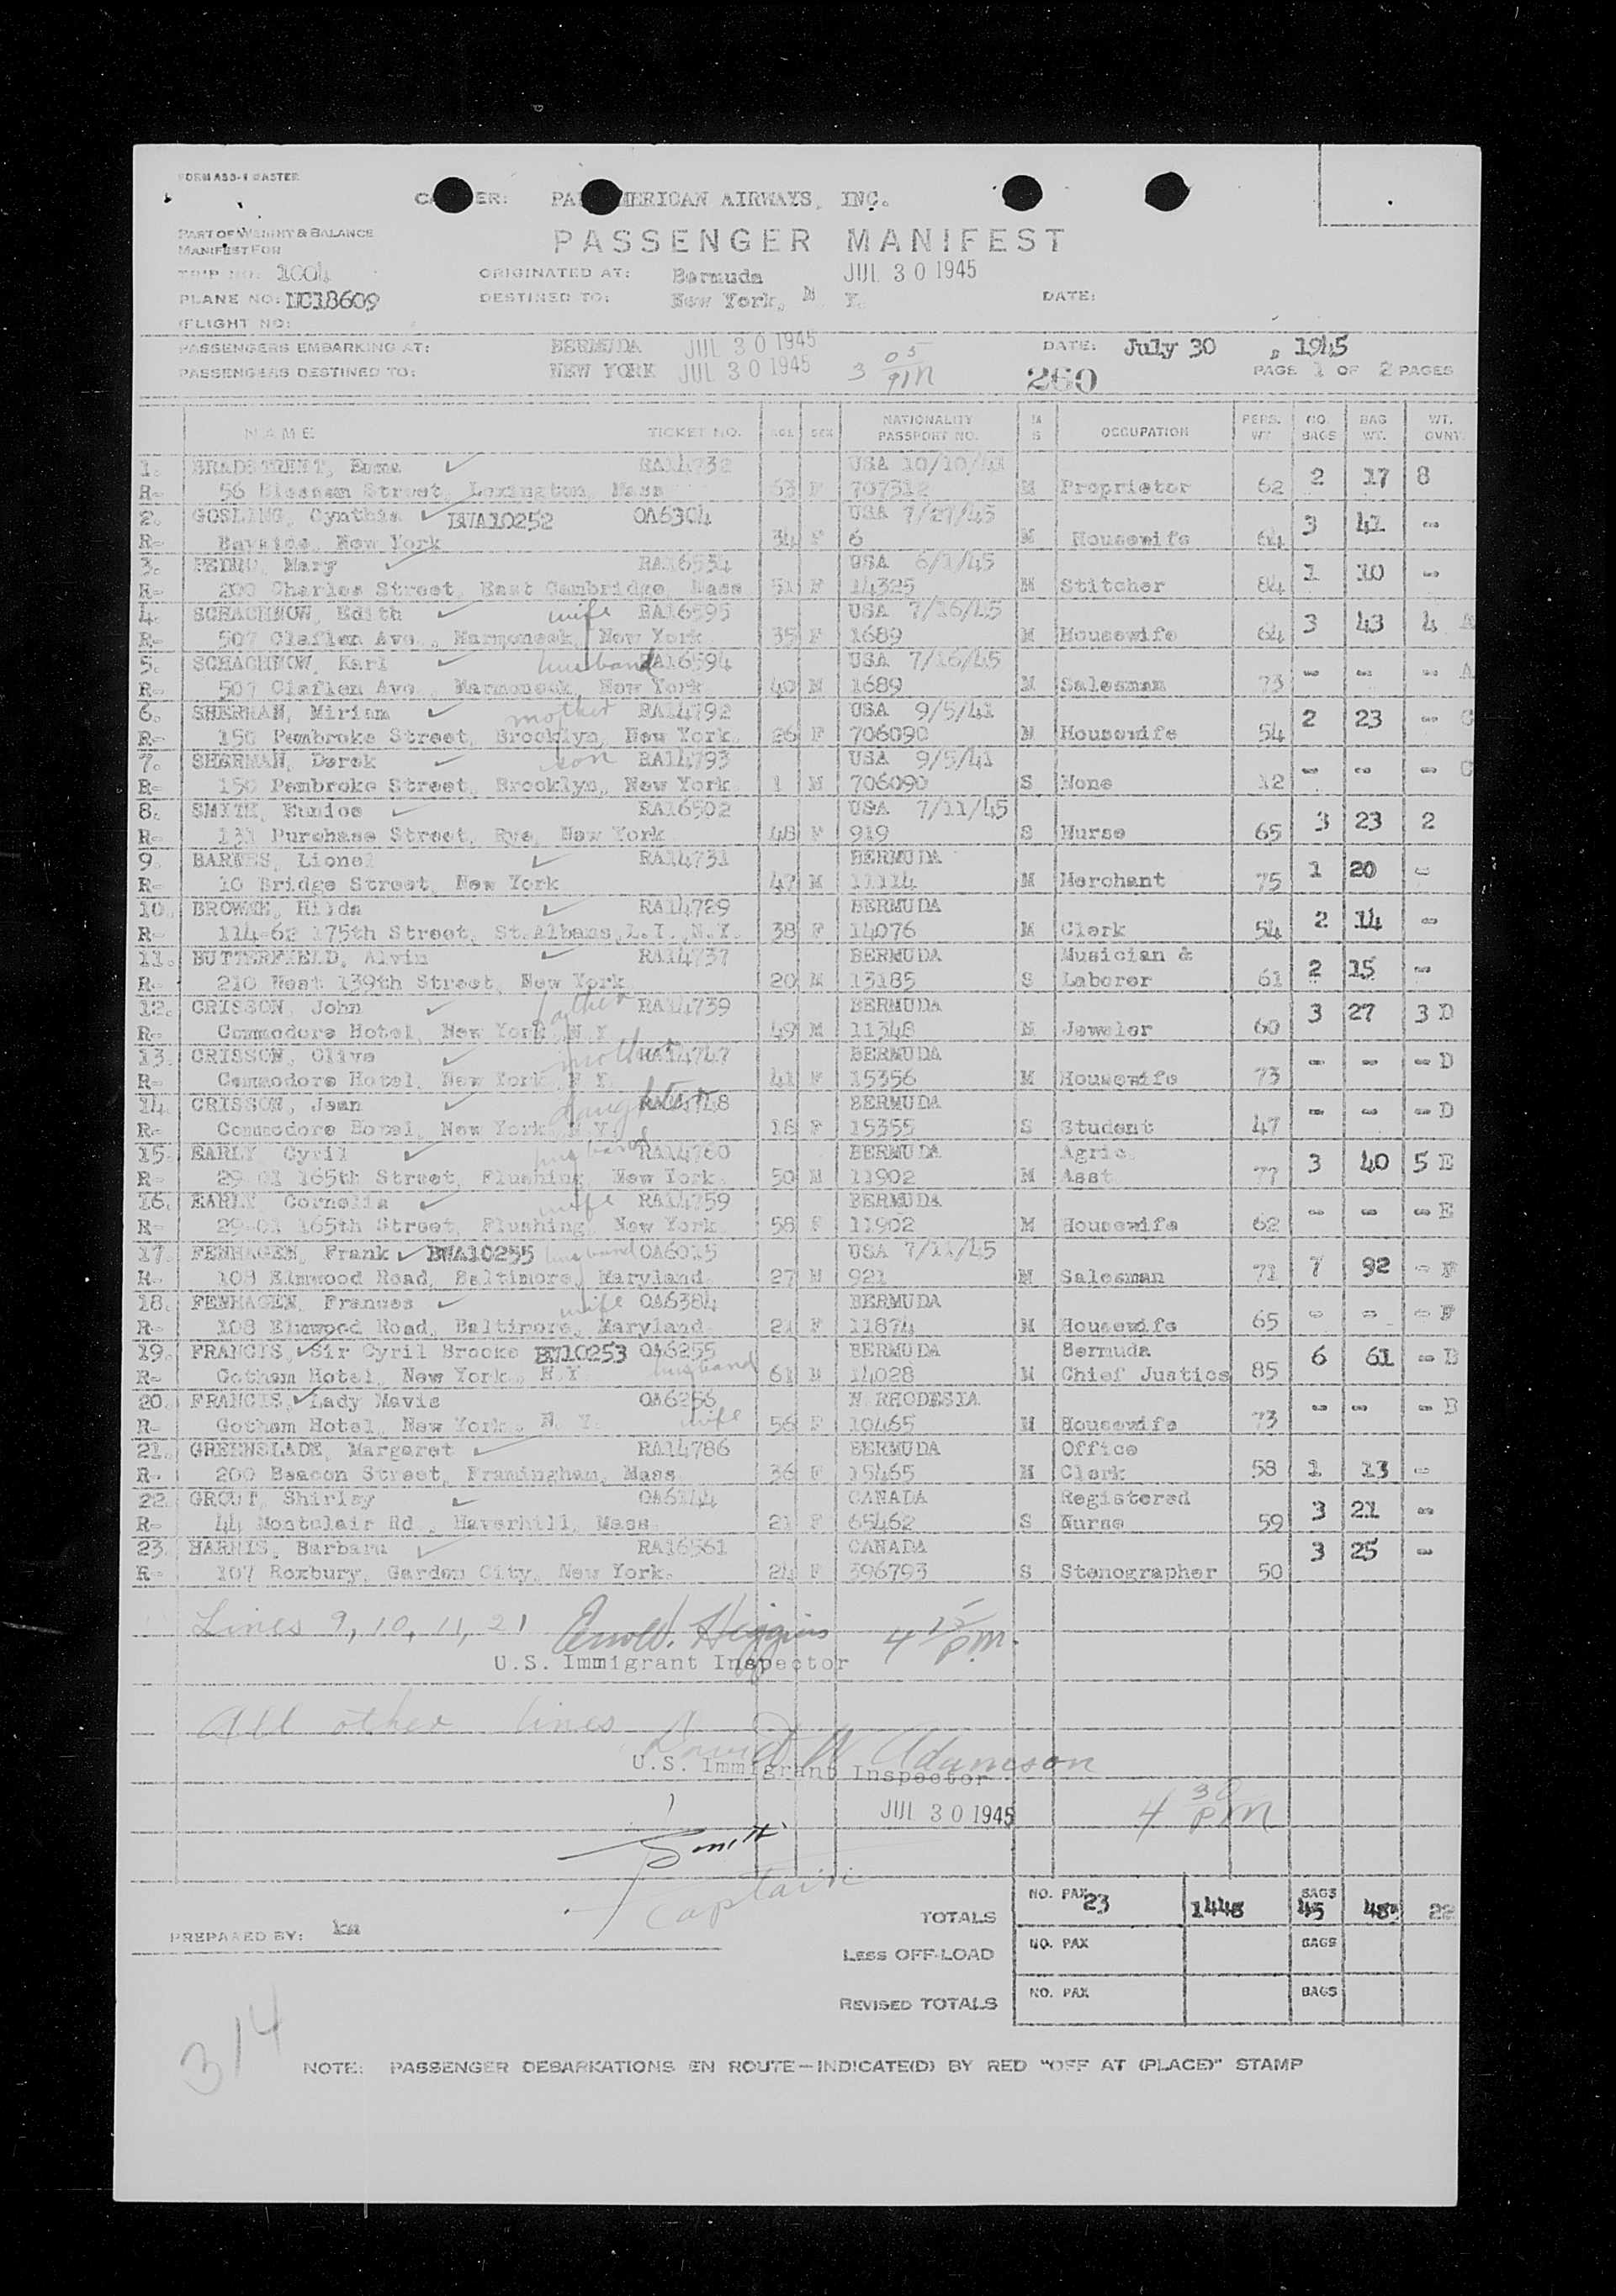 FORM ASS-1 MASTER
CA ER: PA MERICAN AIRWAYS, INC.
PART OF WEIGHT & BALANCE
MANIFEST FOR
PASSENGER MANIFEST
TRIP NO: 1004 ORIGINATED AT: Bermuda JUL 30 1945
PLANE NO: NC18609 DESTINED TO: New York, N Y. DATE:
FLIGHT NO:
PASSENGERS EMBARKING AT: BERMUDA JUL 30 1945 DATE: July 30, 1945
PASSENGERS DESTINED TO: NEW YORK JUL 30 1945 3 05 PM 260 PAGE 1 OF 2 PAGES
NAME TICKET NO. AGE SEX NATIONALITY PASSPORT NO. M S OCCUPATION PERS. WT NO. BAGS BAG WT. WT. OVNT.
1. BRADSTREET, Emma RA14732 USA 10/10/41
R- 56 Street, Lexington, Mass 63 F 707312 M Proprietor 62 2 17 8
2. GOSLING, Cynthia BWA10252 OA6304 USA 7/27/45
R- Bayside, New York 34 F 6 M Housewife 64 3 41 -
3. PEDRO, Mary RA16534 USA 6/1/45
R- 200 Charles Street, East Cambridge, Mass 51 F 14325 M Stitcher 84 1 10 -
4. SCHACHNOW, Edith wife RA16595 USA 7/16/45
R- 507 Claflen Ave., Marmoneck, New York 35 F 1689 M Housewife 64 3 43 4 A
5. SCHACHNOW, Karl husband RA16594 USA 7/16/45
R- 507 Claflen Ave., Marmoneck, New York 40 M 1689 M Salesman 73 - - - A
6. SHERMAN, Miriam mother RA14792 USA 9/5/41
R- 150 Pembroke Street, Brooklyn, New York 26 F 706090 M Housewife 54 2 23 - C
7. SHERMAN, Derek son RA14793 USA 9/5/41
R- 150 Pembroke Street, Brooklyn, New York 1 M 706090 S None 12 - - - C
8. SMITH, Eunice RA16502 USA 7/11/45
R- 131 Purchase Street, Rye, New York 48 F 919 S Nurse 65 3 23 2
9. BARNES, Lionel RA14731 BERMUDA
R- 10 Bridge Street, New York 47 M 11114 M Merchant 75 1 20 -
10. BROWNE, Hilda RA14729 BERMUDA
R- 114-62 175th Street, St.Albans,L.I.,N.Y. 38 F 14076 M Clerk 54 2 14 -
11. BUTTERFIELD, Alvin RA14737 BERMUDA Musician &
R- 210 West 139th Street, New York 20 M 13185 S Laborer 61 2 15 -
12. CRISSON, John father RA14739 BERMUDA
R- Commodore Hotel, New York, N.Y. 49 M 11348 M Jeweler 60 3 27 3 D
13. CRISSON, Olive mother RA14747 BERMUDA
R- Commodore Hotel, New York, N.Y. 41 F 15356 M Housewife 73 - - - D
14. CRISSON, Jean daughter RA14748 BERMUDA
R- Commodore Hotel, New York, N.Y. 18 F 15355 S Student 47 - - - D
15. EARLY Cyril husband RA14760 BERMUDA Agric.
R- 29-01 165th Street, Flushing, New York 50 M 11902 M Asst. 77 3 40 5 E
16. EARLY Cornelia wife RA14759 BERMUDA
R- 29-01 165th Street, Flushing, New York 58 F 11902 M Housewife 62 - - - E
17. FENHAGEN, Frank BWA10255 husband OA6015 USA 7/11/45
R- 108 Elmwood Road, Baltimore, Maryland 27 M 921 M Salesman 71 7 92 - F
18. FENHAGEN, Frances wife OA6384 BERMUDA
R- 108 Elmwood Road, Baltimore, Maryland 21 F 11874 M Housewife 65 - - - F
19. FRANCIS, Sir Cyril Brooke BW10253 OA6255 BERMUDA Bermuda
R- Gotham Hotel, New York, N.Y. husband 61 M 14028 M Chief Justice 85 6 61 - B
20. FRANCIS, Lady Mavis OA6256 N. RHODESIA
R- Gotham Hotel, New York, N. Y. wife 56 F 10465 M Housewife 73 - - - B
21. GREENSLADE, Margaret RA14786 BERMUDA Office
R- 200 Beacon Street, Framingham, Mass 36 F 15465 M Clerk 58 1 13 -
22. GROUT, Shirley OA6144 CANADA Registered
R- 44 Montclair Rd., Haverhill, Mass 21 F 65462 S Nurse 59 3 21 -
23. HARRIS, Barbara RA16561 CANADA
R- 107 Roxbury, Garden City, New York. 24 F 396793 S Stenographer 50 3 25 -
Lines 9, 10, 11, 21 Higgins 4 15 PM.
U.S. Immigrant Inspector
All other lines David W Adamson
U.S. Immigrant Inspector
JUL 30 1945 4 30 PM
Smith
Captain
TOTALS NO. PAX 23 1448 BAGS 45 485 22
PREPARED BY: km
Less OFF-LOAD NO. PAX BAGS
REVISED TOTALS NO. PAX BAGS
314
NOTE: PASSENGER DEBARKATIONS EN ROUTE—INDICATE(D) BY RED "OFF AT (PLACE)" STAMP